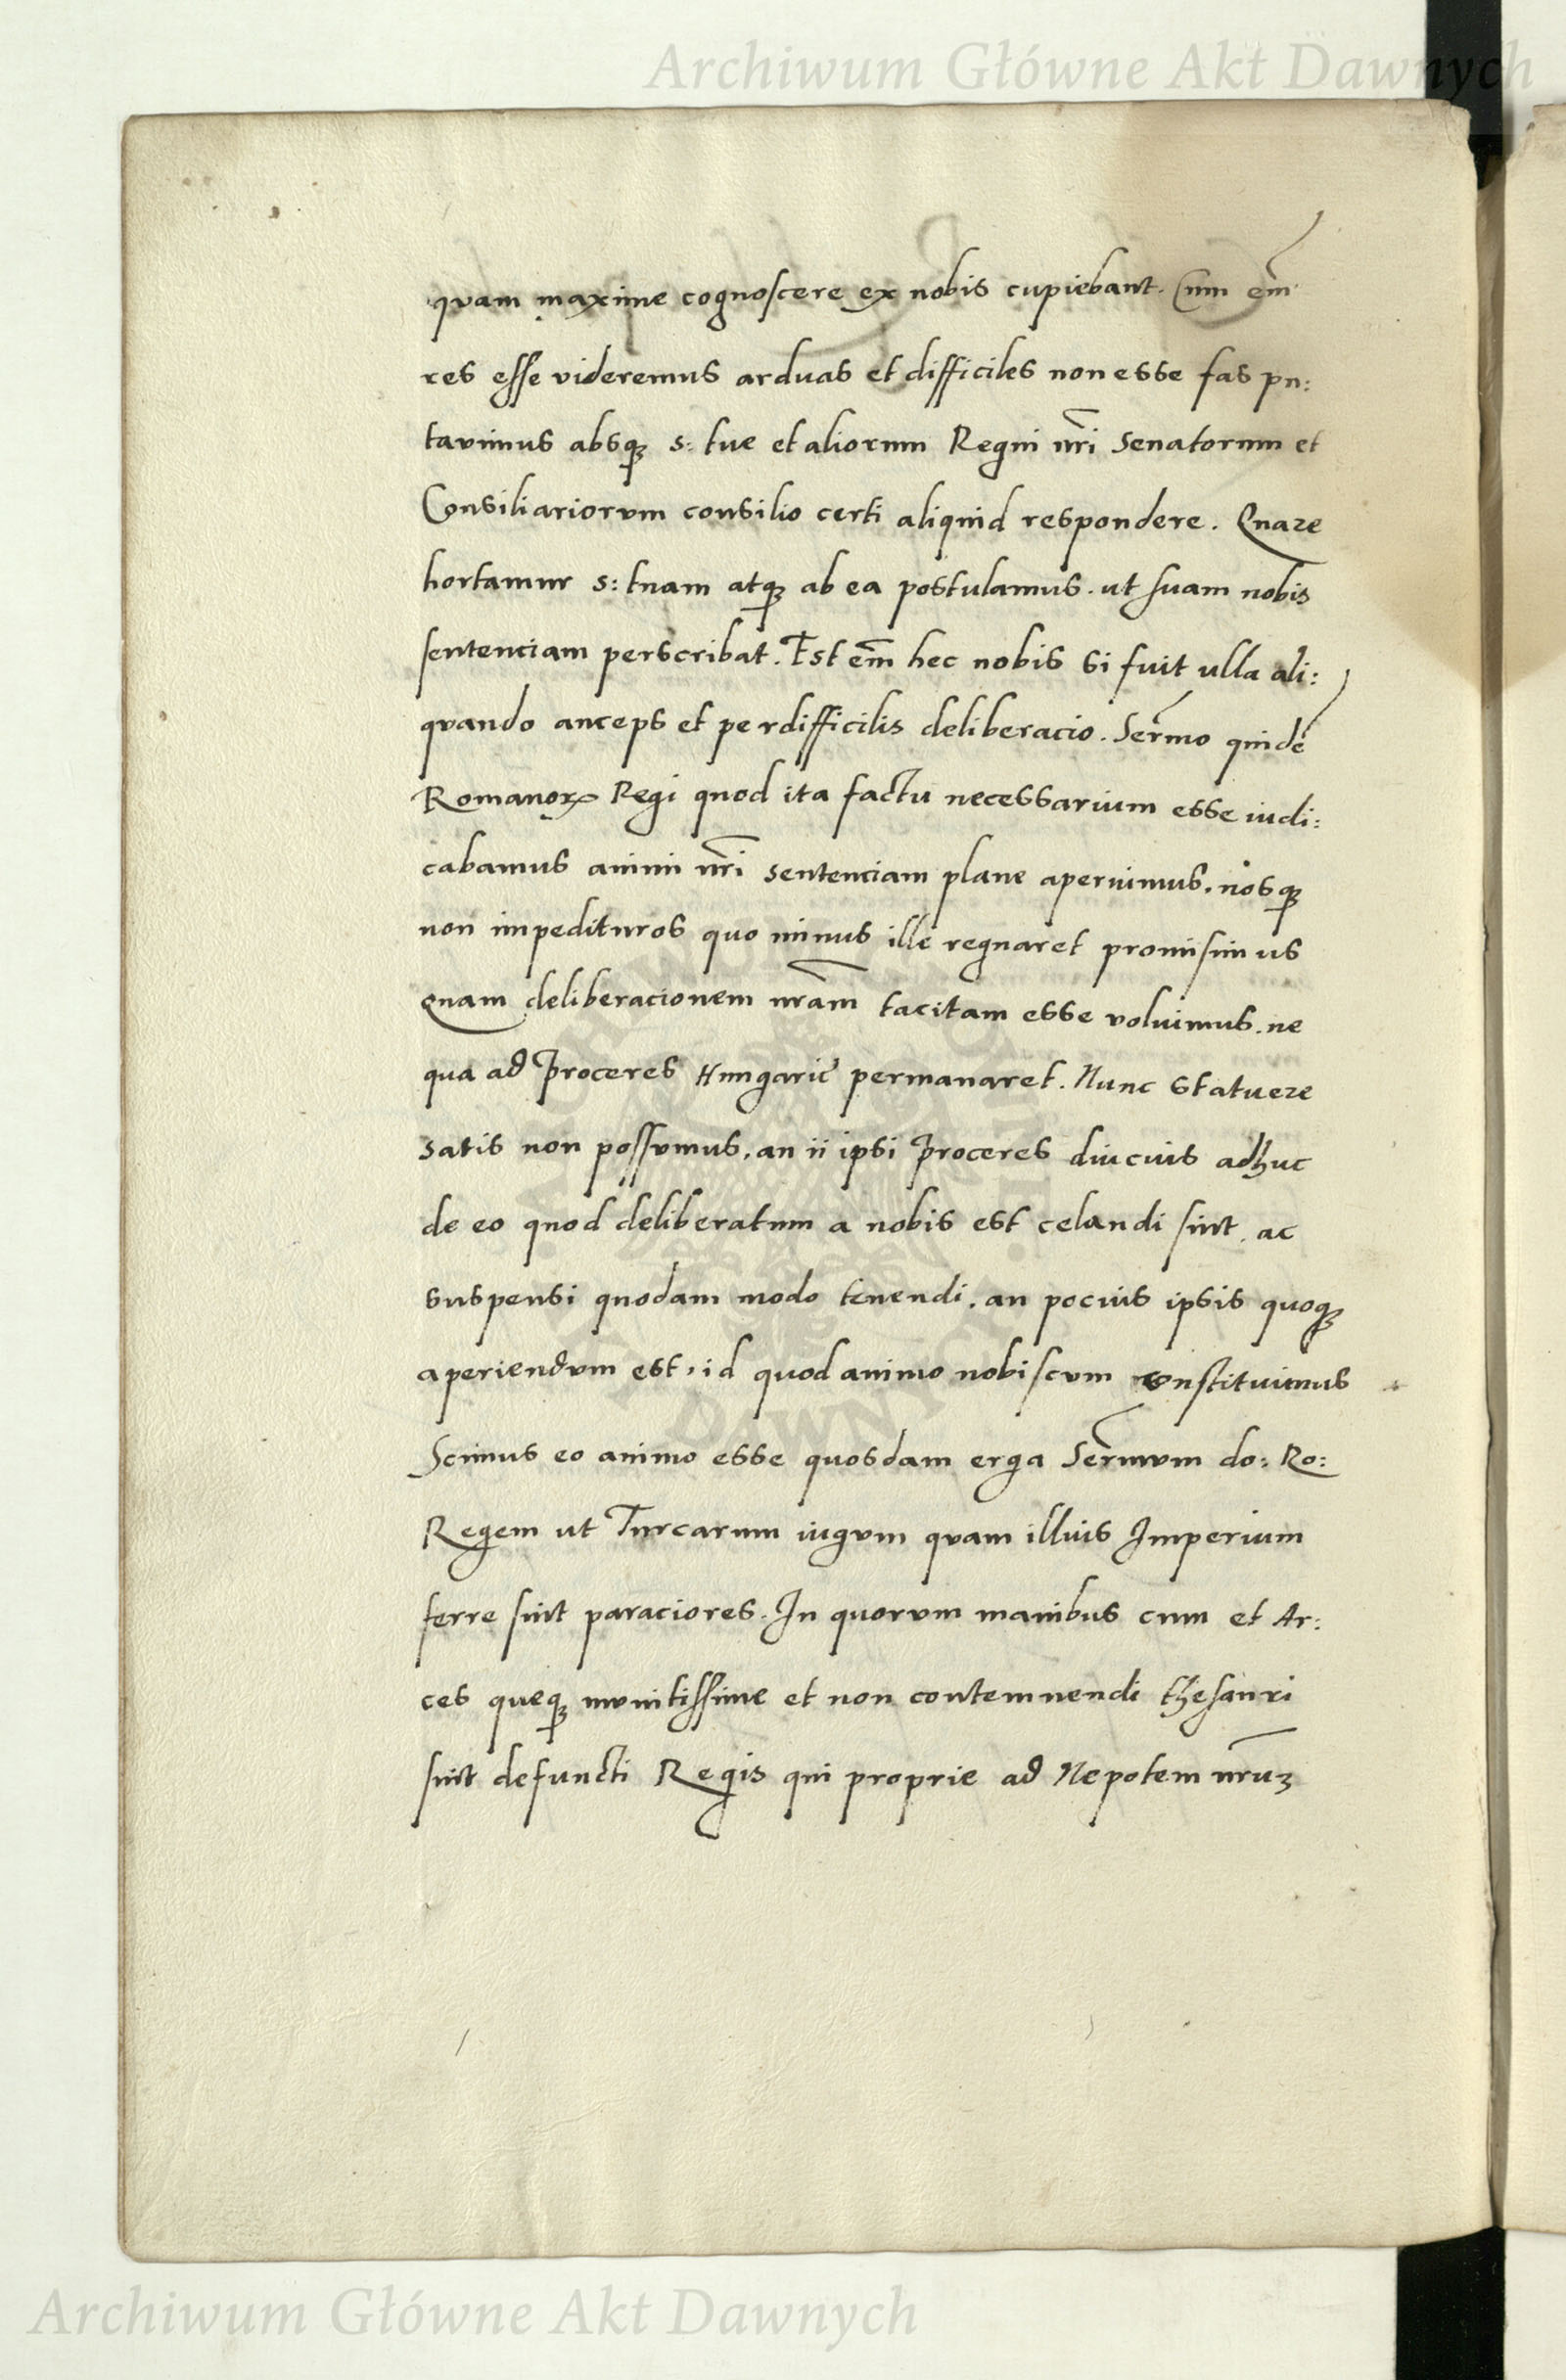 Archiwum Główne Akt Dawnych
quam maxime cognoscere ex nobis cupiebant. Cum em̄
res esse videremus arduas et difficiles non esse fas pu:
tavimus absqꝫ s: tue et aliorum Regni nr̄i Senatorum et
Consiliariorum consilio certi aliquid respondere. Quare
hortamur s: tuam atqꝫ ab ea postulamus. ut suam nobis
sentenciam perscribat. Est em̄ hec nobis si fuit ulla ali:
quando anceps et perdifficilis deliberacio. Ser̄mo quidē
Romanoꝝ Regi quod ita factu necessarium esse iudi:
cabamus animi nr̄i sentenciam plane aperuimus. nosqꝫ
non impedituros quo minus ille regnaret promisimus
quam deliberacionem nr̄am tacitam esse voluimus. ne
qua ad Proceres Hungarie permanaret. Nunc statuere
satis non possumus. an ii ipsi Proceres diucius adhuc
de eo quod deliberatum a nobis est celandi sint. ac
suspensi quodam modo tenendi. an pocius ipsis quoqꝫ
aperiendum est, id quod animo nobiscum constituimus
Scimus eo animo esse quosdam erga Ser̄mum do: Ro:
Regem ut Turcarum iugum quam illius Imperium
ferre sint paraciores. In quorum manibus cum et Ar:
ces queqꝫ munitissime et non contemnendi thesauri
sint defuncti Regis qui proprie ad Nepotem nr̄uꝫ
Archiwum Główne Akt Dawnych